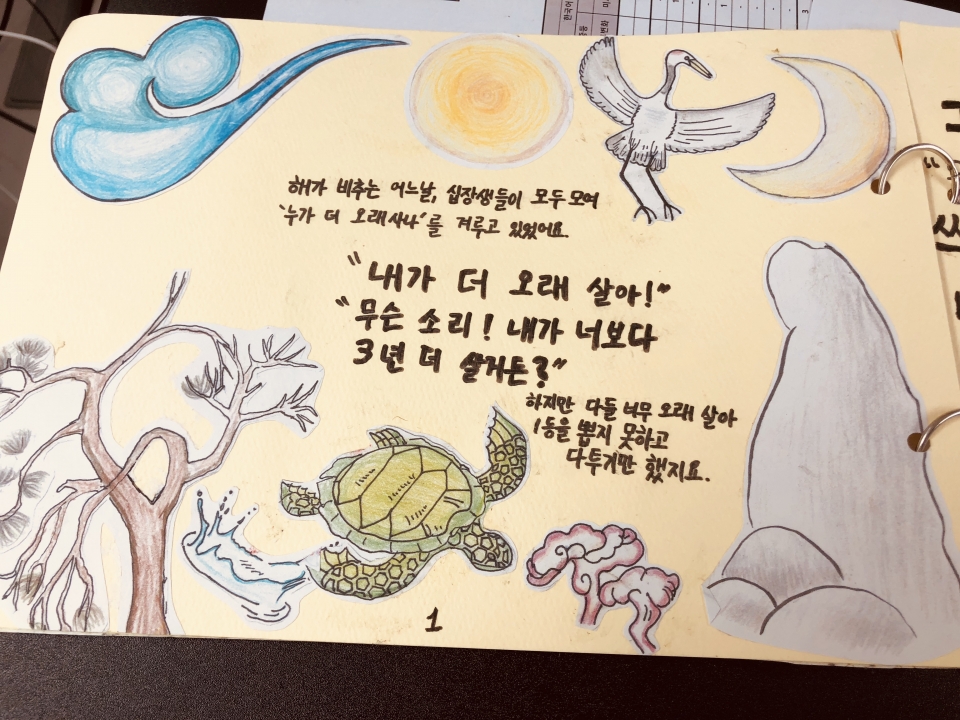 해가 비추는 어느날, 십장생들이 모두 모여
'누가 더 오래사나'를 겨루고 있었어요.
"내가 더 오래 살아!"
"무슨 소리! 내가 너보다
3년 더 살거든?"
하지만 다들 너무 오래 살아
1등을 뽑지 못하고
다투기만 했지요.
1